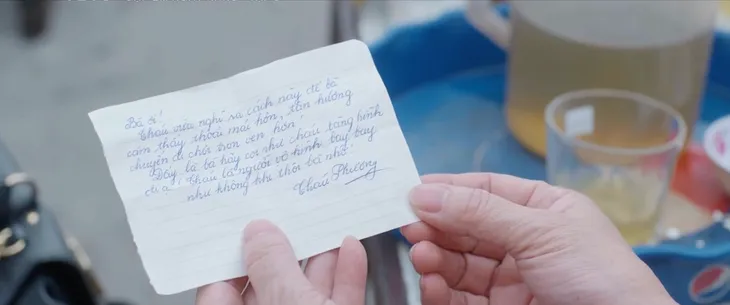 Bà ơi!
Cháu vừa nghĩ ra cách này để bà
cảm thấy thoải mái hơn, tận hưởng
chuyến đi chơi trọn vẹn hơn!
Đây là bà hãy coi như cháu tàng hình
đi ạ! Cháu là người vô hình bay bay
như không khí thôi bà nhớ!
Cháu Phương
pepsi